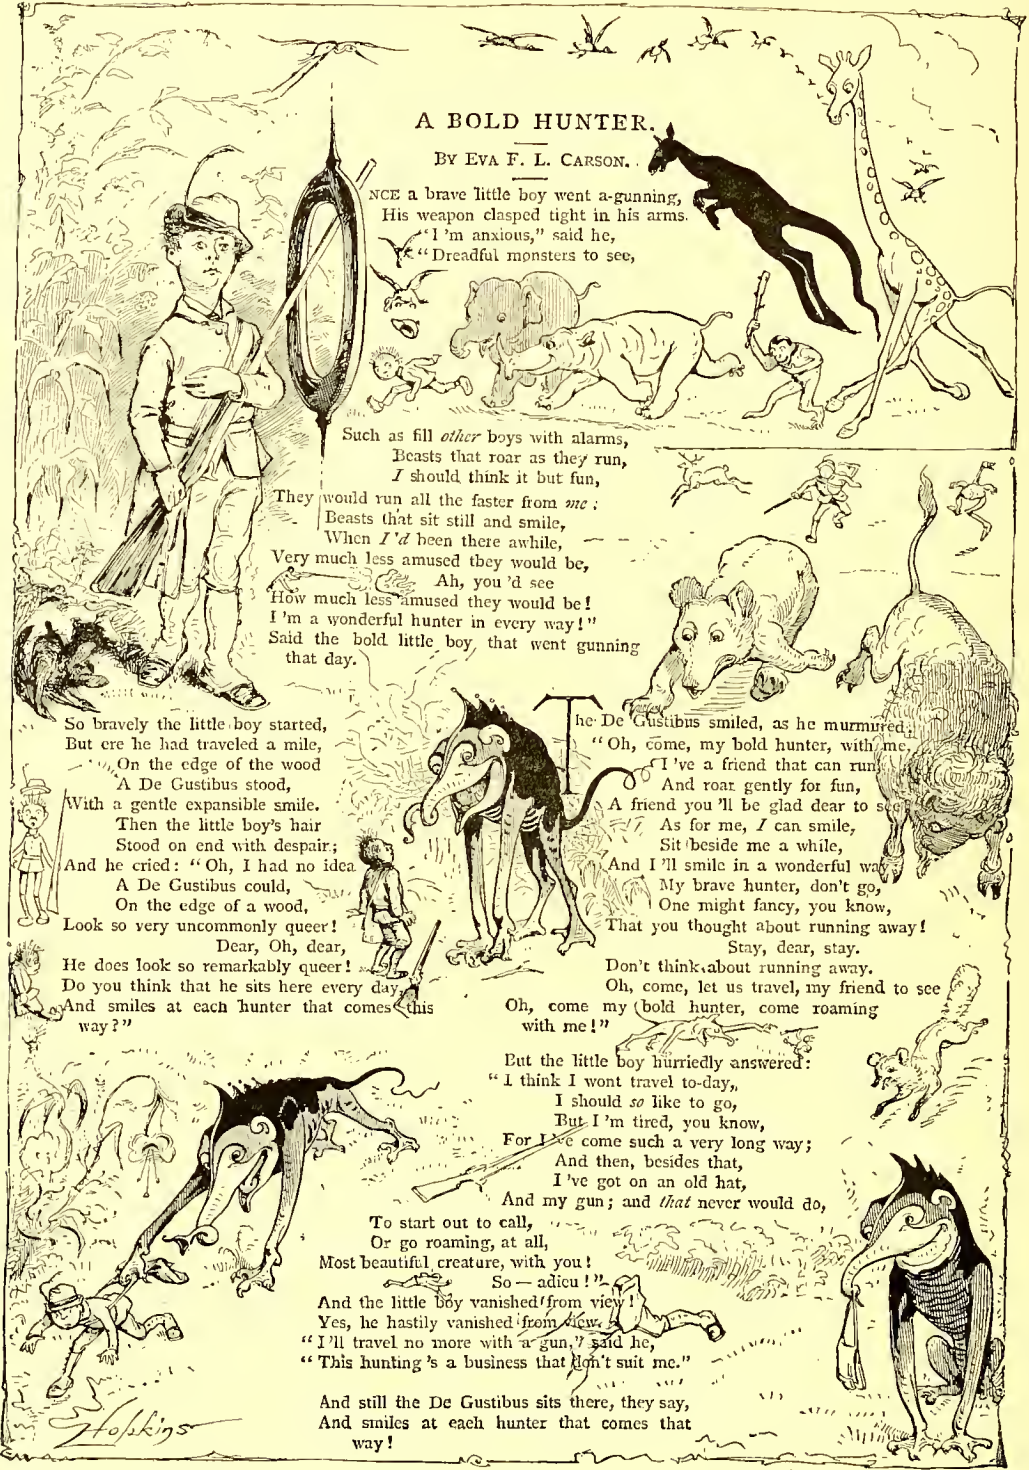 A BOLD HUNTER.
BY EVA F. L. CARSON.
ONCE a brave little boy went a-gunning,
His weapon clasped tight in his arms.
"I 'm anxious," said he,
"Dreadful monsters to see,
Such as fill other boys with alarms,
Beasts that roar as they run,
I should think it but fun,
They would run all the faster from me;
Beasts that sit still and smile,
When I'd been there awhile,
Very much less amused they would be,
Ah, you 'd see
How much less amused they would be!
I 'm a wonderful hunter in every way!"
Said the bold little boy, that went gunning
that day.
So bravely the little boy started,
But ere he had traveled a mile,
On the edge of the wood
A De Gustibus stood,
With a gentle expansible smile.
Then the little boy's hair
Stood on end with despair;
And he cried: "Oh, I had no idea
A De Gustibus could,
On the edge of a wood,
Look so very uncommonly queer!
Dear, Oh, dear,
He does look so remarkably queer!
Do you think that he sits here every day,
And smiles at each hunter that comes this
way?"
The De Gustibus smiled, as he murmured,
"Oh, come, my bold hunter, with me,
I 've a friend that can run
And roar gently for fun,
A friend you 'll be glad dear to see
As for me, I can smile,
Sit beside me a while,
And I 'll smile in a wonderful way
My brave hunter, don't go,
One might fancy, you know,
That you thought about running away!
Stay, dear, stay.
Don't think about running away.
Oh, come, let us travel, my friend to see
Oh, come my bold hunter, come roaming
with me!"
But the little boy hurriedly answered:
"I think I wont travel to-day,
I should so like to go,
But I 'm tired, you know,
For I 've come such a very long way;
And then, besides that,
I 've got on an old hat,
And my gun; and that never would do,
To start out to call,
Or go roaming, at all,
Most beautiful creature, with you!
So—adieu!"
And the little boy vanished from view!
Yes, he hastily vanished from view.
"I'll travel no more with a gun," said he,
"This hunting 's a business that don't suit me."
And still the De Gustibus sits there, they say,
And smiles at each hunter that comes that
way!
Hopkins